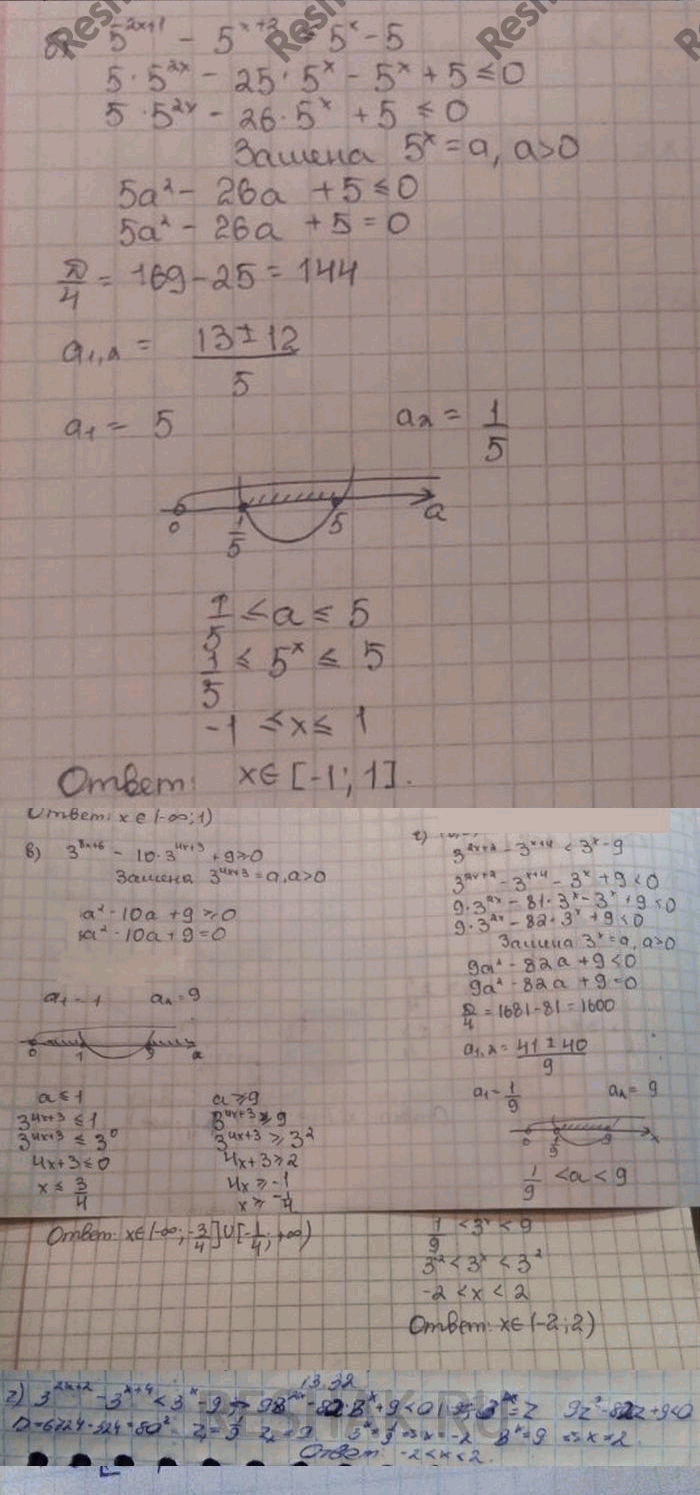 5^{2x+1} - 5^{x+2} ≤ 5^x - 5
5·5^{2x} - 25·5^x - 5^x + 5 ≤ 0
5·5^{2x} - 26·5^x + 5 ≤ 0
Замена 5^x = a, a>0
5a² - 26a + 5 ≤ 0
5a² - 26a + 5 = 0
D/4 = 169 - 25 = 144
a_{1,2} = (13 ± 12)/5
a₁ = 5 a₂ = 1/5
0 1/5 5 a
1/5 ≤ a ≤ 5
1/5 ≤ 5^x ≤ 5
-1 ≤ x ≤ 1
Ответ: x∈[-1; 1].
Ответ: x∈(-∞; 1)
в) 3^{8x+6} - 10·3^{4x+3} + 9 ≥ 0
Замена 3^{4x+3} = a, a>0
a² - 10a + 9 ≥ 0
a² - 10a + 9 = 0
a₁ = 1 a₂ = 9
0 1 9 a
a ≤ 1 a ≥ 9
3^{4x+3} ≤ 1 3^{4x+3} ≥ 9
3^{4x+3} ≤ 3^0 3^{4x+3} ≥ 3^2
4x+3 ≤ 0 4x+3 ≥ 2
x ≤ 3/4 4x ≥ -1
x ≥ -1/4
Ответ: x∈(-∞; -3/4]∪[-1/4; +∞)
г)
3^{2x+2} - 3^{x+4} < 3^x - 9
3^{2x+2} - 3^{x+4} - 3^x + 9 < 0
9·3^{2x} - 81·3^x - 3^x + 9 < 0
9·3^{2x} - 82·3^x + 9 < 0
Замена 3^x = a, a>0
9a² - 82a + 9 < 0
9a² - 82a + 9 = 0
D/4 = 1681 - 81 = 1600
a_{1,2} = (41 ± 40)/9
a₁ = 1/9 a₂ = 9
0 1/9 9 x
1/9 < a < 9
1/9 < 3^x < 9
3^{-2} < 3^x < 3^2
-2 < x < 2
Ответ: x∈(-2; 2)
13.32
г) 3^{2x+2} - 3^{x+4} < 3^x - 9 => 9·3^{2x} - 82·3^x + 9 < 0 3^x = z 9z² - 82z + 9 < 0
D = 6724 - 324 = 80² z₂ = 9 => x = -2 3^x = 9 => x = 2
Ответ -2 < x < 2.